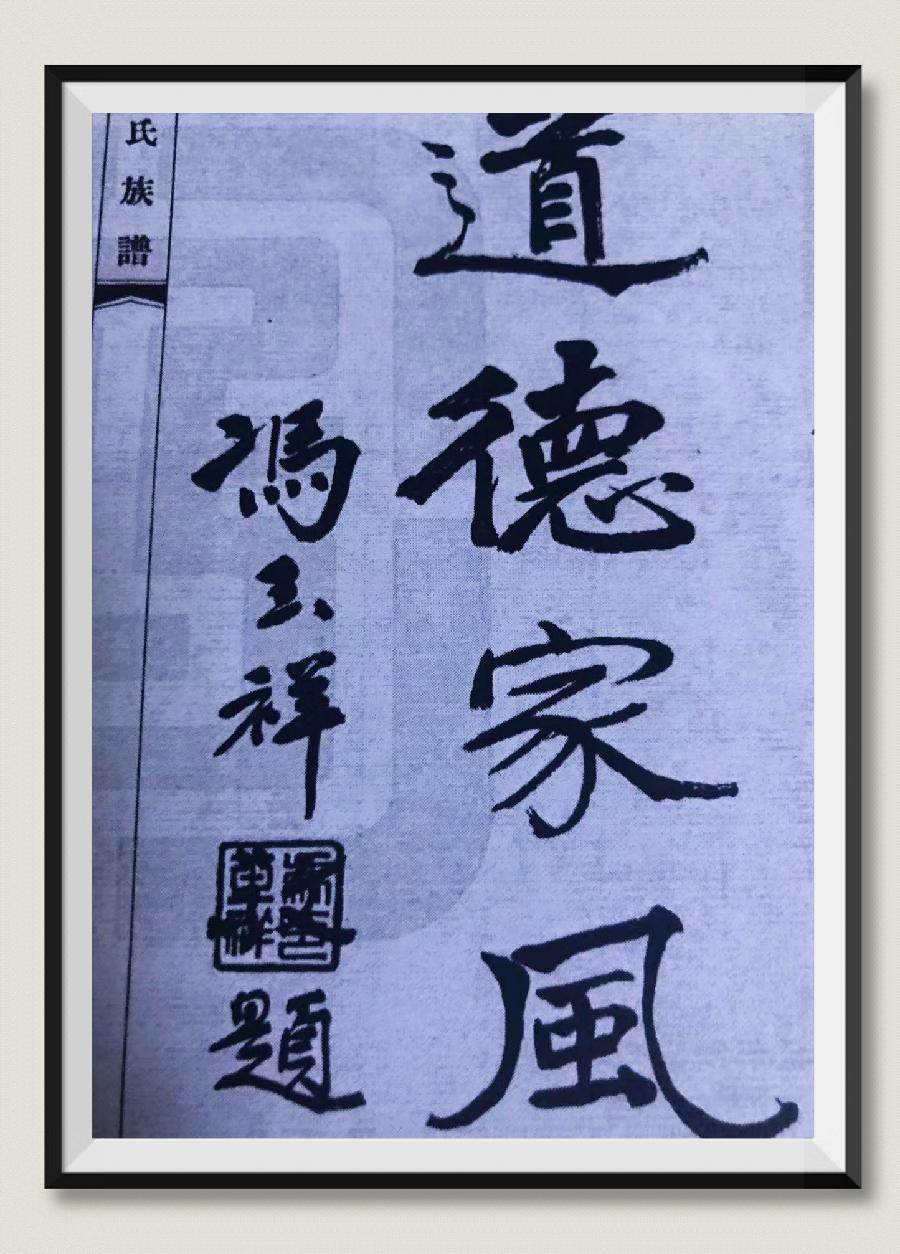 道德家風
馮玉祥
題
氏族譜